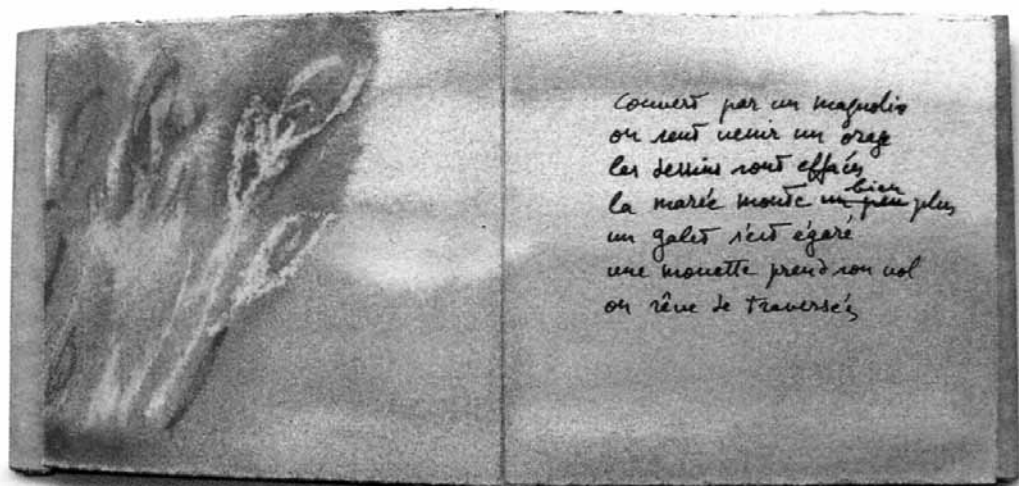 couvert par un magnolia
on sent venir un orage
les dessins sont effacés
la marée monte un peu bien plus
un galet s'est égaré
une mouette prend son vol
on rêve de traversées